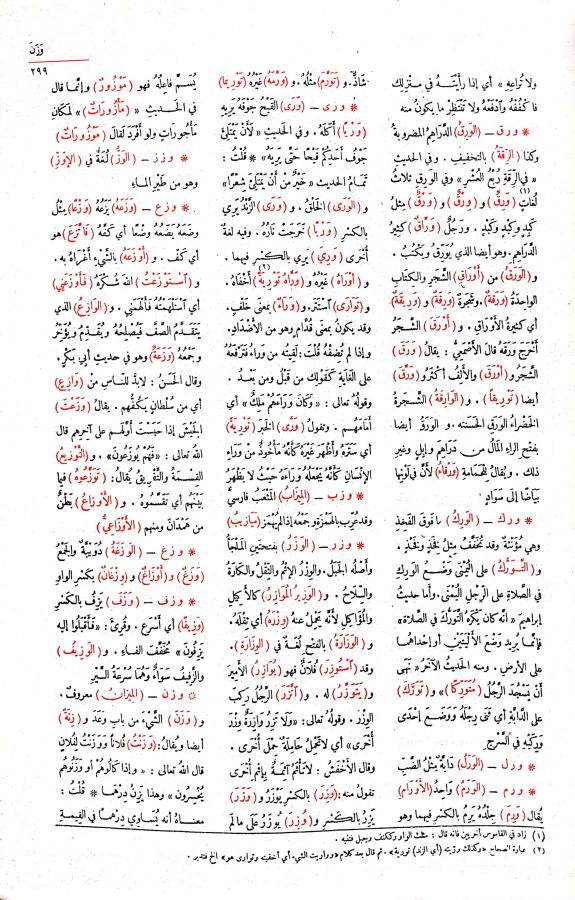 وَزَنَ
٢٩٩
ولا تُراعِهِ » أي إذا رأيتَه في منزلِك
فا كْفُفْهُ وادْفَعْهُ ولا تَنْتَظِرْ ما يكونُ منه
* ورق – (الوَرِقُ) الدَّراهِمُ المَضْروبةُ
وكذا (الرِّقَةُ) بالتخفيف . وفي الحديثِ
« في الرِّقةِ رُبْعُ العُشْرِ » وفي الوَرِقِ ثلاثُ
لُغاتٍ (وَرِقٌ) و (وِرْقٌ) و (وَرْقٌ) مِثْلُ
كَبِدٍ وكِبْدٍ وكَبْدٍ . ورَجُلٌ (وَرَّاقٌ) كثيرُ
الدَّراهِمِ . وهو أيضا الذي يُوَرِّقُ ويَكْتُبُ .
و (الوَرَقُ) من (أَوْراقِ) الشَّجَرِ والكِتابِ
الواحِدَةُ (وَرَقَةٌ) وشَجَرَةٌ (وَرِقَةٌ) و (وَرِيقَةٌ)
أي كثيرةُ الأَوْراقِ . و (أَوْرَقَ) الشَّجَرُ
أخْرَجَ وَرَقَهُ قالَ الأَصْمَعِيُّ : يقالُ (وَرَقَ)
الشَّجَرُ و (أوْرَقَ) والألِفُ أكثرُ و (وَرَّقَ)
أيضا (تَوْرِيقاً) . و (الوارِقَةُ) الشَّجَرةُ
الخَضْراءُ الوَرَقِ الحَسَنتُه . و الوَرَقُ أيضا
بفتحِ الراءِ المالُ من دَراهِمَ وإبِلٍ وغيرِ
ذلك . ويُقالُ للحَمامةِ (وَرْقاءُ) لأنّ في لَوْنِها
بَياضًا إلى سَوادٍ
* ورك – (الوَرِكُ) ما فَوْقَ الفَخِذِ
وهي مُؤنَّثةٌ وقد تُخَفَّفُ مِثْلُ فَخِذٍ وفَخْذٍ .
و (التَّوَرُّكُ) على اليُمْنَى وَضْعُ الوَرِكِ
في الصلاةِ على الرِّجْلِ اليُمْنَى . وأما حديثُ
إبراهيمَ « أنه كان يَكْرَهُ التَّوَرُّكَ في الصلاة »
فإنّما يُريدُ وَضْعَ الأَلْيَتَيْنِ أو إحْداهُما
على الأرضِ . ومنه الحديثُ الآخَرُ « نَهَى
أن يَسْجُدَ الرَّجُلُ (مُتَوَرِّكا) » و (تَوَرَّكَ)
على الدَّابَّةِ أي ثَنَى رِجْلَهُ ووَضَعَ إحْدَى
وَرِكَيْهِ في السَّرْجِ
* ورل – (الوَرَلُ) دابَّةٌ مِثْلُ الضَّبِّ
* ورم – (الوَرَمُ) واحِدُ (الأَوْرامِ)
يُقال (وَرِمَ) جِلْدُهُ يَرِمُ بالكسر فيهما وهو
شاذٌّ . و (تَوَرَّمَ) مِثْلُهُ . و (وَرَّمَهُ) غيرُهُ (تَوْرِيما)
* ورى – (وَرَى) القَيْحُ جَوْفَهُ يَرِيهِ
(وَرْيًا) أَكَلَهُ . وفي الحديثِ « لَأَنْ يَمْتَلِئَ
جَوْفُ أَحَدِكُمْ قَيْحًا حَتَّى يَرِيَهُ » * قُلْتُ :
تَمامُ الحديثِ « خيرٌ مِنْ أنْ يَمْتَلِئَ شِعْرًا »
و (الوَرَى) الخَلْقُ . و (وَرَى) الزَّنْدُ يَرِي
بالكسْرِ (وَرْيًا) خَرَجَتْ نارُهُ . وفيه لغةٌ
أُخْرَى (وَرِيَ) يَرِي بالكسرِ فيهما .
و (أوْراهُ) غيرُهُ و (وَرَّاهُ تَوْرِيَةً) أخْفاهُ .
و (تَوارَى) اسْتَتَرَ . و (وَراءَ) بمعنى خَلْفٍ .
وقد يكونُ بمعنى قُدَّام وهو من الأضْدادِ .
وإذا لم تُضِفْهُ قُلتَ : لَقيتُه من وَراءُ فتَرْفَعُهُ
على الغايَةِ كقولِكَ من قَبْلُ ومن بَعْدُ .
وقولُهُ تعالى : « وكانَ وراءَهُم مَلِكٌ » أي
أمامَهم . وتقولُ (وَرَّى) الخَبَرَ (تَوْرِيَةً)
أي سَتَرَهُ وأظْهَرَ غيرَهُ كأنّه مأخُوذٌ من وَراءِ
الإنسانِ كأنّه يَجْعَلُهُ وَراءَهُ حيثُ لا يَظْهَرُ
* وزب – (المِيزابُ) المَثْعَبُ فارسي
وقد عُرِّبَ بالهمزِ وجمعُه إذا لم يُهْمَز (مَيازِيبُ)
* وزر – (الوَزَرُ) بفتحتين المَلْجَأُ
وأصْلُهُ الجَبَلُ . والوِزْرُ الإثمُ والثِّقْلُ والكَارةُ
والسِّلاحُ . و (الوَزِيرُ المُوازِرُ) كالأَكِيلِ
والمُؤَاكِلِ لأنّه يَحْمِلُ عنه (وِزْرَهُ) أي ثِقْلَهُ .
و (الوَزارةُ) بالفتح لُغَةٌ في (الوِزارَةِ) .
وقد (اسْتُوزِرَ) فُلانٌ فهو (يُوازِرُ) الأميرَ
و (يَتَوَزَّرُ) له . و (اتَّزَرَ) الرَّجُلُ رَكِبَ
الوِزْرَ . وقولُهُ تعالى : « ولا تَزِرُ وازِرَةٌ وِزْرَ
أُخْرَى » أي لا تَحْمِلُ حامِلةٌ حِمْلَ أُخْرَى .
وقال الأخْفَشُ : لا تَأْثَمُ آثِمةٌ بإثمِ أُخْرَى
تقولُ منه : (وَزِرَ) بالكسر يَوْزَرُ و (وَزَرَ)
يَزِرُ بالكسر و (وُزِرَ) يُوزَرُ على ما لم
يُسَمَّ فاعِلُهُ فهو (مَوْزُورٌ) وإنما قال
في الحديث « (مَأْزُوراتٍ) » لمكانِ
مَأْجُوراتٍ ولو أَفْرَدَ لقال (مَوْزُوراتٍ)
* وزز – (الوَزُّ) لُغَةٌ في (الإوَزِّ)
وهو من طَيْرِ الماءِ
* وزع – (وَزَعَهُ) يَزَعُهُ (وَزْعًا) مِثْلُ
وَضَعَهُ يَضَعُهُ وَضْعًا أي كَفَّهُ (فاتَّزَعَ) هو
أي كَفَّ . و (أَوْزَعَهُ) بالشَّيْءِ أغْراهُ به .
و (اسْتَوْزَعْتُ) اللهَ شُكْرَهُ (فأَوْزَعَنِي)
أي اسْتَلْهَمْتُهُ فأَلْهَمَنِي . و (الوازِعُ) الذي
يَتَقَدَّمُ الصَّفَّ فيُصْلِحُهُ ويُقَدِّمُ ويُؤَخِّرُ
وجَمْعُهُ (وَزَعَةٌ) وهو في حديثِ أبي بَكْرٍ .
وقال الحَسَنُ : لابُدَّ للناسِ مِنْ (وازِعٍ)
أي مِن سُلطانٍ يَكُفُّهم . يقالُ (وَزَعْتُ)
الجَيْشَ إذا حَبَسْتَ أوَّلَهم على آخِرِهم قال
اللهُ تعالى : « فَهُم يُوزَعُونَ » . و (التَّوْزِيعُ)
القِسْمةُ والتَّفْرِيقُ يقالُ : (تَوَزَّعُوهُ) فيما
بَيْنَهُم أي تَقَسَّمُوهُ . و (الأَوْزاعُ) بَطْنٌ
من هَمْدَانَ ومنهم (الأَوْزاعِيُّ)
* وزغ – (الوَزَغَةُ) دُوَيْبَّةٌ والجَمْعُ
(وَزَغٌ) و (أَوْزاغٌ) و (وِزْغانٌ) بكسرِ الواوِ
* وزف – (وَزَفَ) يَزِفُ بالكسر
(وَزِيفًا) أي أسْرَعَ . وقُرِئَ : « فأقْبَلُوا إليه
يَزِفُونَ » بتخفيفِ الفاءِ . و (الوَزِيفُ)
والزَّفِيفُ سَواءٌ وهُما سُرْعةُ السَّيْرِ
* وزن – (المِيزانُ) معروفٌ .
و (وَزَنَ) الشَّيْءَ من بابِ وَعَدَ و (زِنَةً)
أيضا ويُقالُ : (وَزَنْتُ) فُلانًا ووَزَنْتُ لفُلانٍ
قال اللهُ تعالى : « وإذا كالُوهُمْ أو وَزَنُوهُم
يُخْسِرُون » وهذا يَزِنُ دِرْهَمًا * قُلْتُ :
معناه أنه يُساوي دِرْهَمًا في القِيمةِ
(١) زاد في القاموس أخريين فانه قال : مثلث الواو وككتف وجبل فتنبه .
(٢) عبارة الصحاح « وكذلك وريته (أي الزند) تورية » . ثم قال بعد كلام « وواريت الشيء أي أخفيته وتوارى هو » إلخ فتدبر .